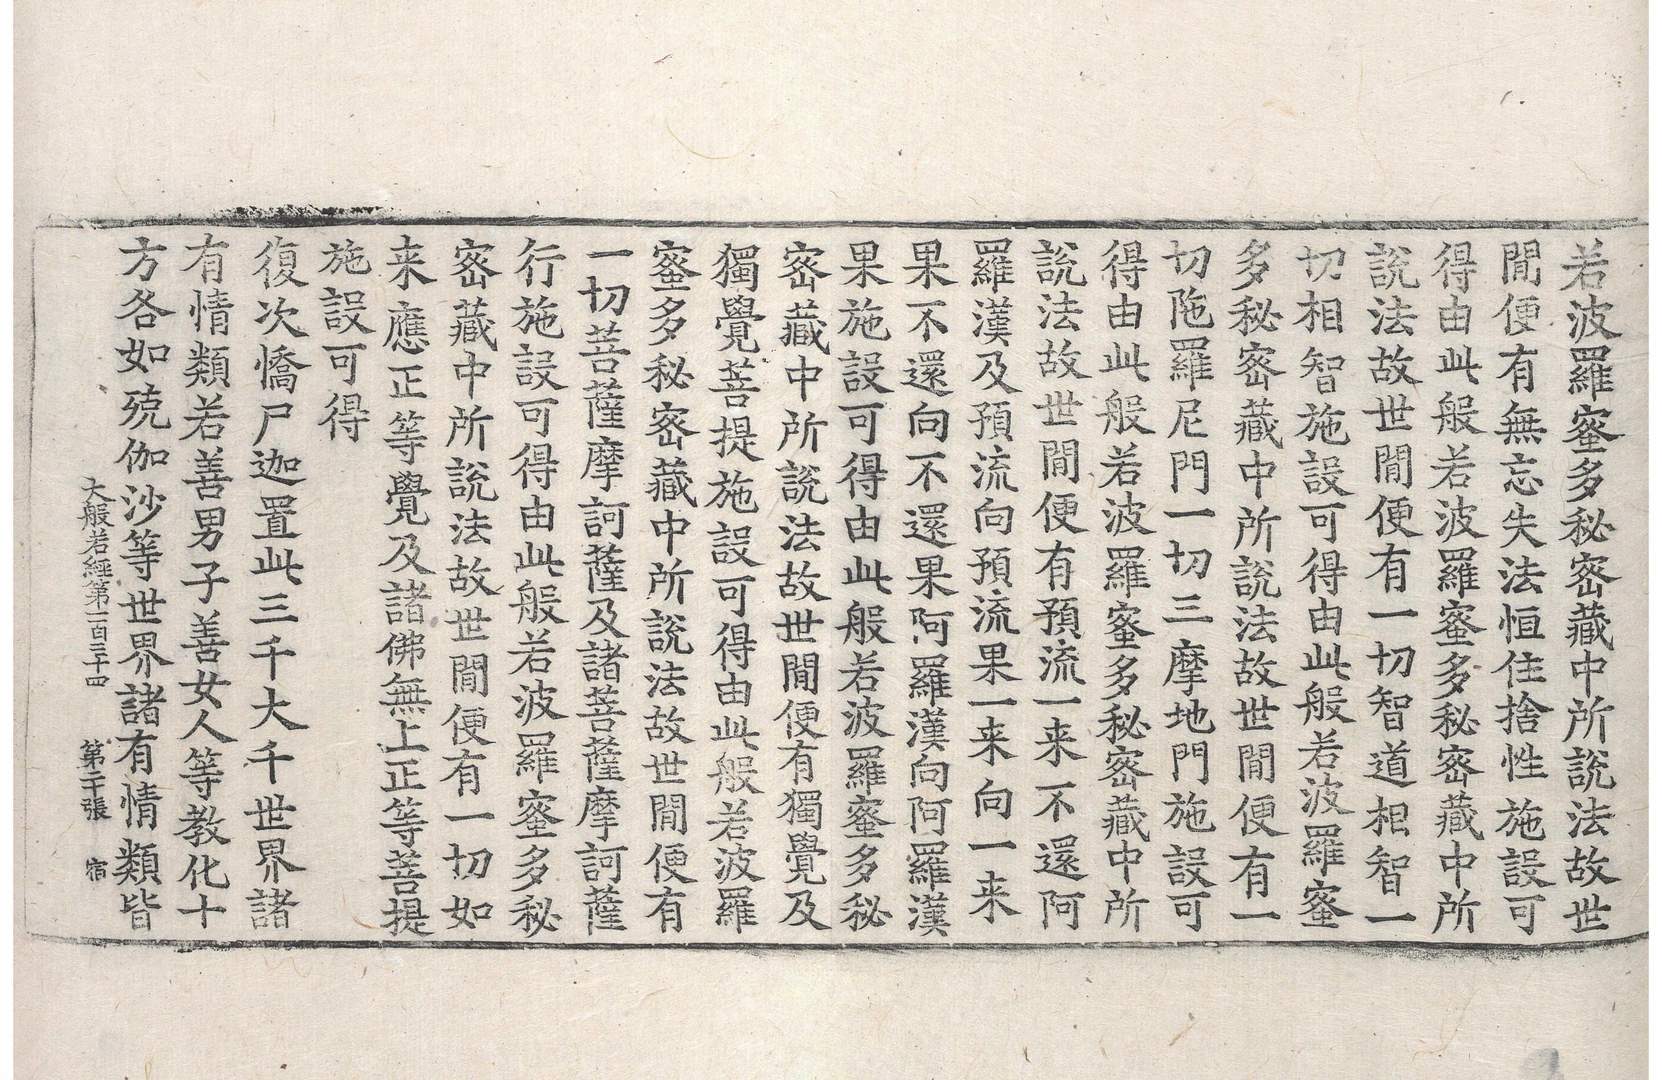 若波羅蜜多秘密藏中所說法故世
間便有無忘失法恒住捨性施設可
得由此般若波羅蜜多秘密藏中所
說法故世間便有一切智道相智一
切相智施設可得由此般若波羅蜜
多秘密藏中所說法故世間便有一
切陁羅尼門一切三摩地門施設可
得由此般若波羅蜜多秘密藏中所
說法故世間便有預流一来不還阿
羅漢及預流向預流果一来向一来
果不還向不還果阿羅漢向阿羅漢
果施設可得由此般若波羅蜜多秘
密藏中所說法故世間便有獨覺及
獨覺菩提施設可得由此般若波羅
蜜多秘密藏中所說法故世間便有
一切菩薩摩訶薩及諸菩薩摩訶薩
行施設可得由此般若波羅蜜多秘
密藏中所說法故世間便有一切如
来應正等覺及諸佛無上正等菩提
施設可得
復次憍尸迦置此三千大千世界諸
有情類若善男子善女人等教化十
方各如殑伽沙等世界諸有情類皆
大般若經第一百三十四 第二十張 宿